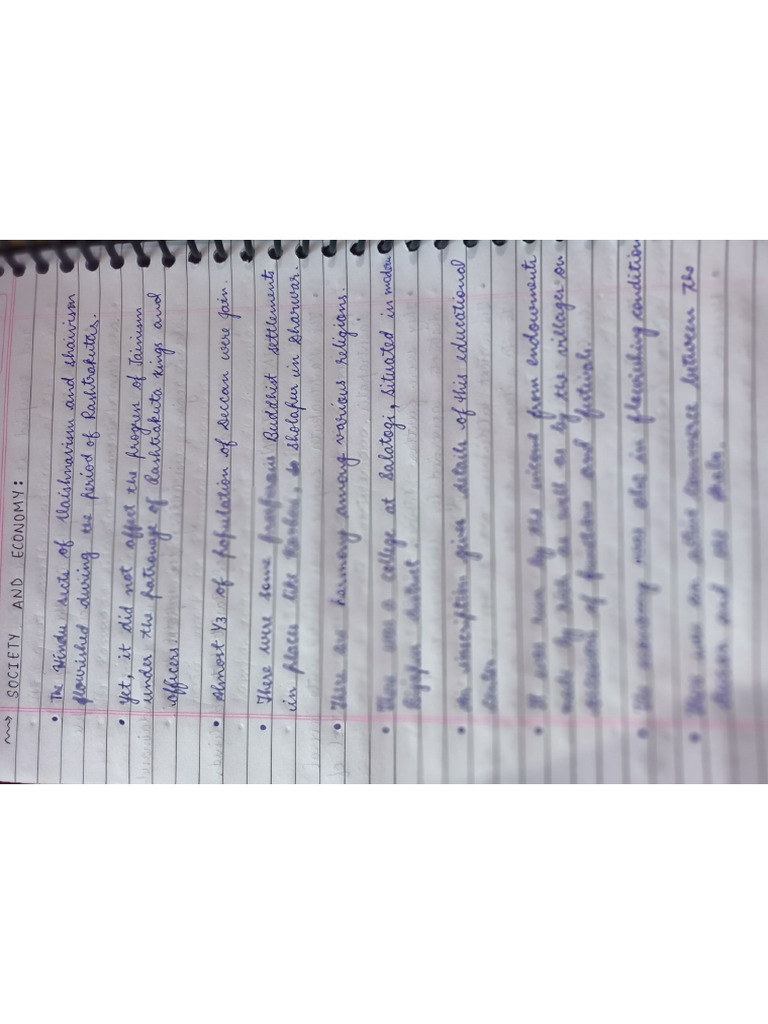 SOCIETY AND ECONOMY:
• The Hindu sects of Vaishnavism and shaivism
flourished during the period of Rashtrakutas.
• Yet, it did not affect the progress of Jainism
under the patronage of Rashtrakuta kings and
officers.
• Almost 1/3 of population of Deccan were Jain.
• There were some prosperous Buddhist settlements
in places like Sholapur in Dharwar.
• There was harmony among various religions.
• There was a college at Salatogi, situated in modern
Bijapur district.
• An inscription gives details of this educational
center
• It was run by the income from endowments
made by rich as well as by the villages on
occasional of functions and festivals.
• The economy was also in flourishing condition
• There was an active commerce between the
deccan and the